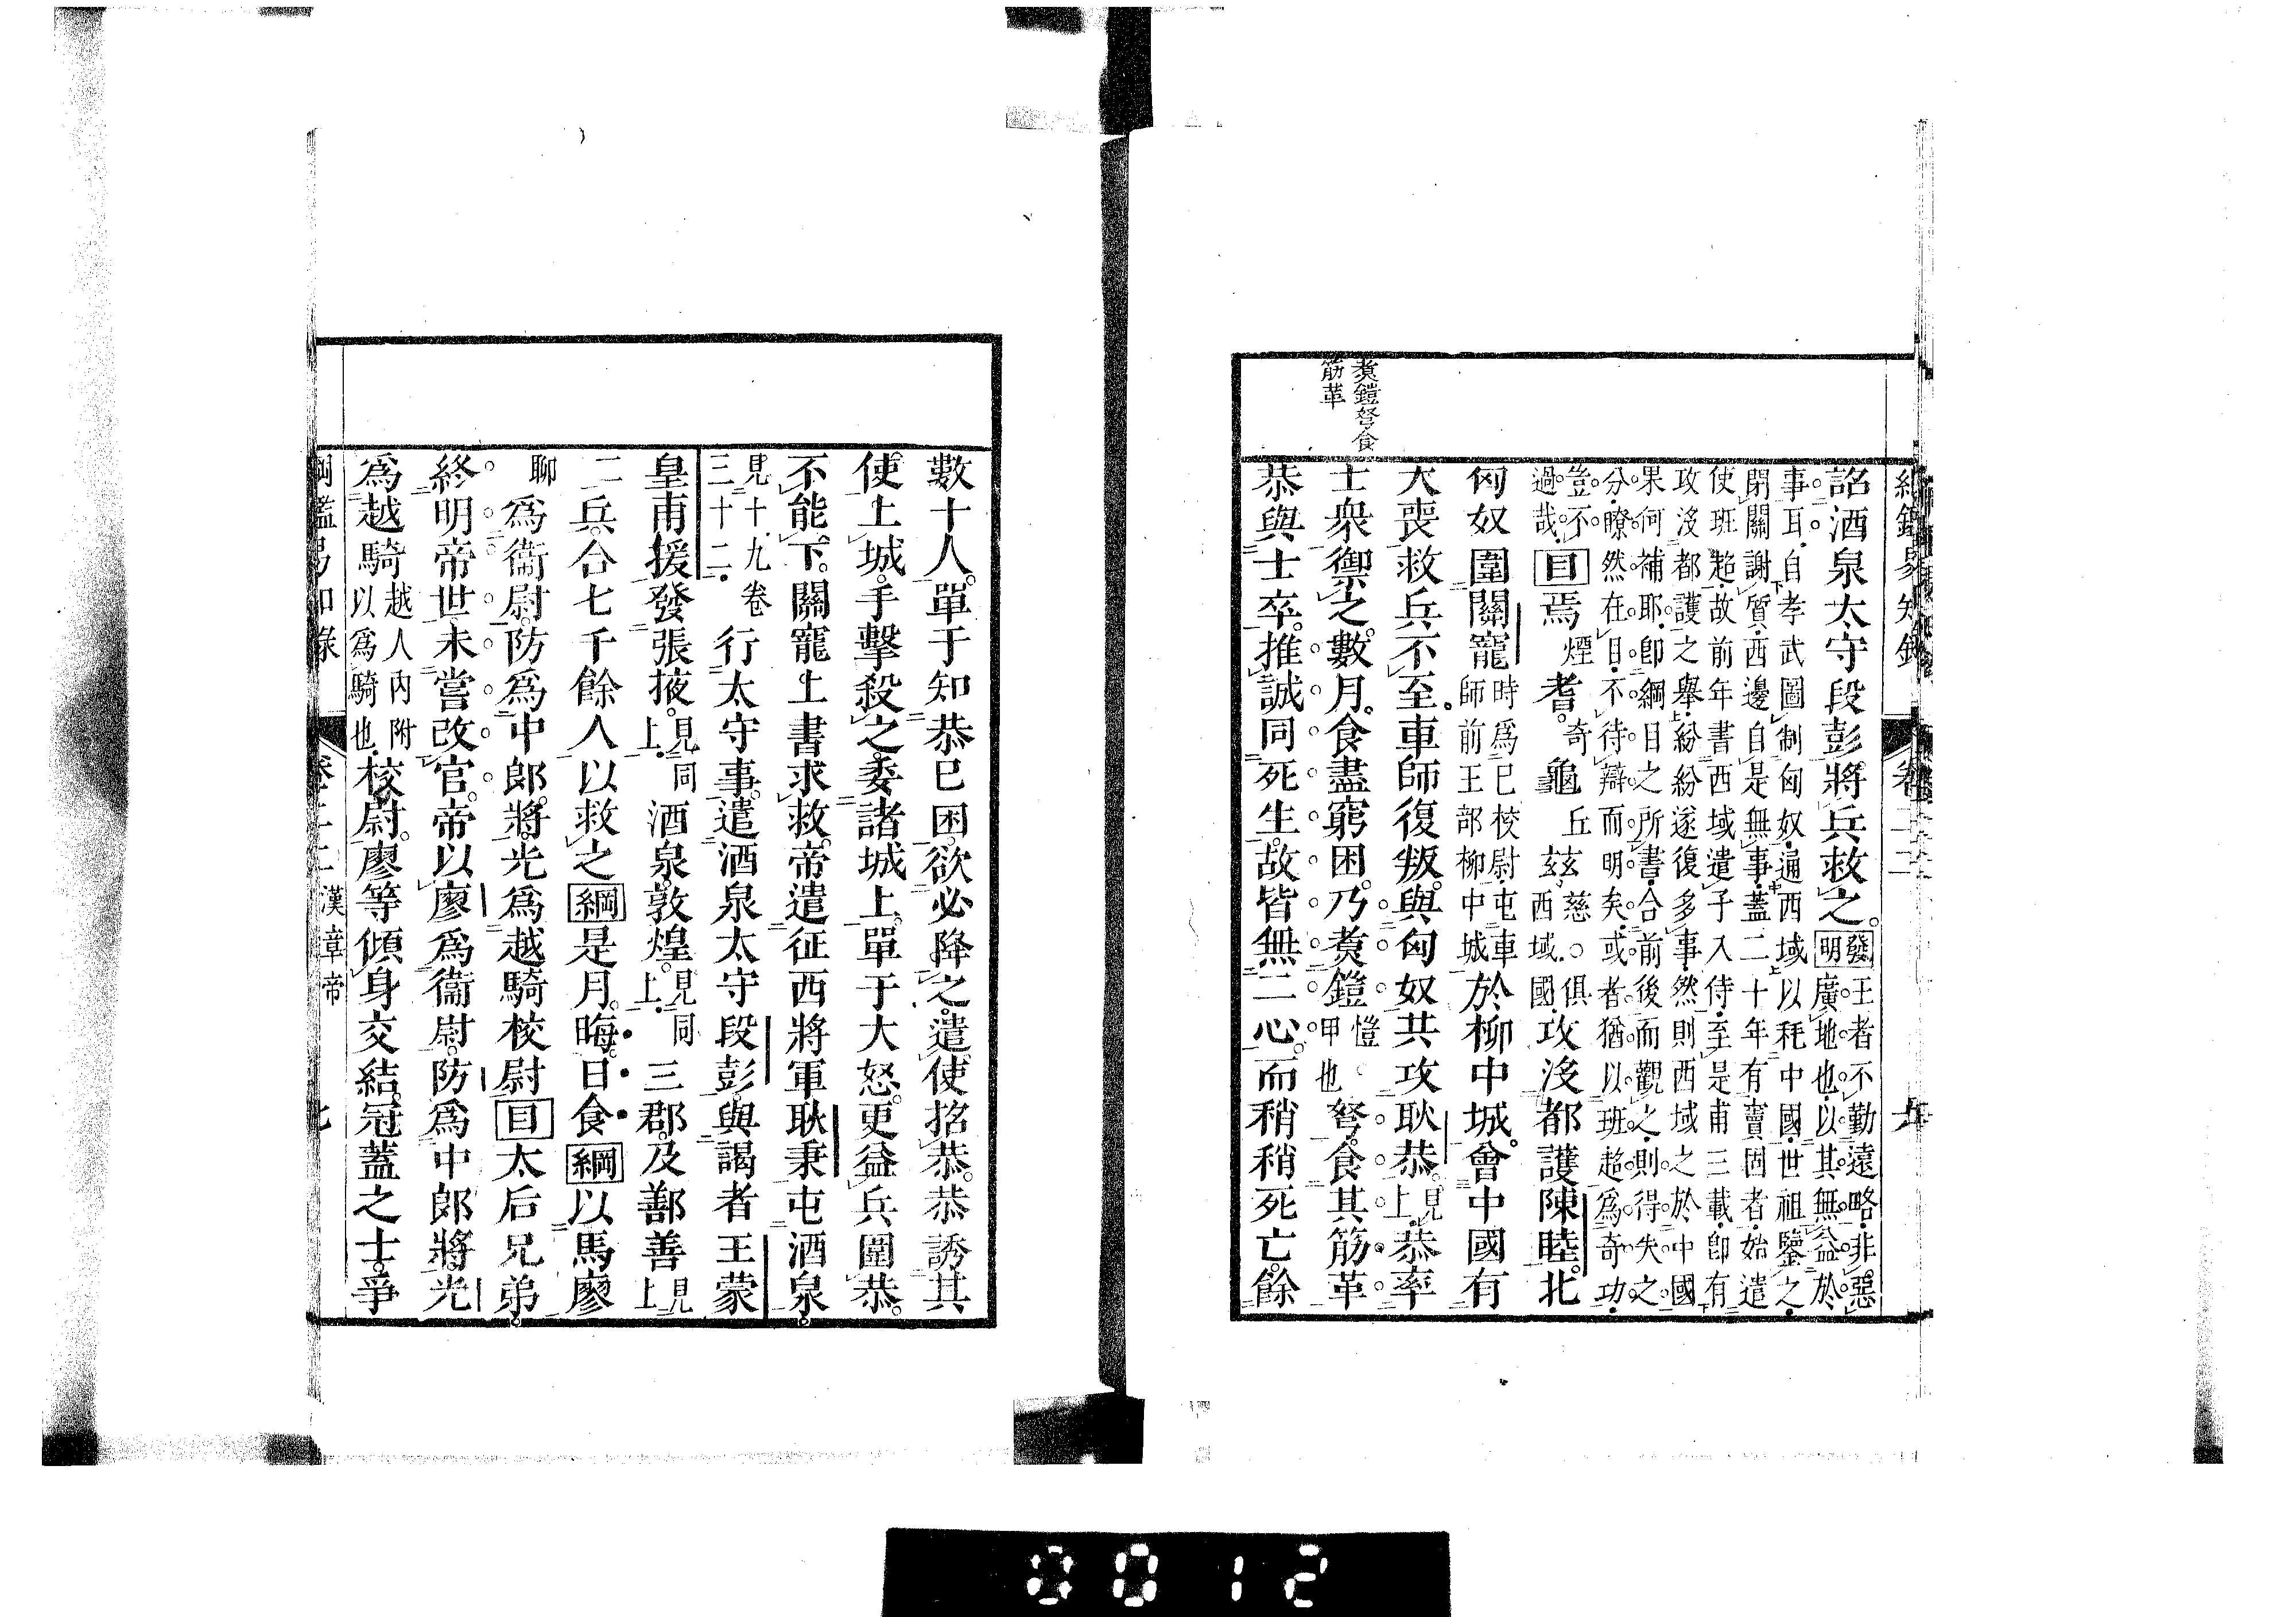 詔酒泉太守段彭。將兵救之。發明王者不勤遠略。非惡廣地也。以其無益於
事耳。自孝武圖制匈奴。遍西域以秏中國。世祖鑒之。
閉關謝質。西邊自是無事。蓋二十年有竇固者。始遣
使班超。故前年書西域遣子入侍。至是甫三載。即有
攻沒都護之舉。紛紛遂復多事。然則西域之於中國
果何補耶。即綱目之所書。合前後而觀之。則得失之
分。瞭然在目。不待辯而明矣。或者猶以班超爲奇功。
豈不過哉。目焉煙耆。奇龜丘玆慈○俱西域國。攻沒都護陳睦。北
匈奴圍關寵時爲巳校尉。屯車師前王部柳中城於柳中城。會中國有
大喪救兵不至。車師復叛。與匈奴共攻耿恭。見上。恭率
煮鎧弩食
筋革
士衆禦之。數月。食盡窮困。乃煮鎧愷甲也弩。食其筋革
恭與士卒。推誠同死生。故皆無二心。而稍稍死亡。餘
數十人。單于知恭已困。欲必降之。遣使招恭。恭誘其
使上城。手擊殺之。委諸城上。單于大怒。更益兵圍恭。
不能下。關寵上書求救。帝遣征西將軍耿秉屯酒泉。
見十九卷三十二。行太守事。遣酒泉太守段彭。與謁者王蒙
皇甫援發張掖。見同上。酒泉。敦煌。見同上。三郡。及鄯善見上
二兵。合七千餘人以救之綱是月。晦。日食綱以馬廖
聊爲衞尉。防爲中郎將。光爲越騎校尉目太后兄弟。
終明帝世。未嘗改官。帝以廖爲衞尉。防爲中郎將。光
爲越騎越人內附以爲騎也。校尉。廖等傾身交結。冠蓋之士。爭
漢章帝
0012